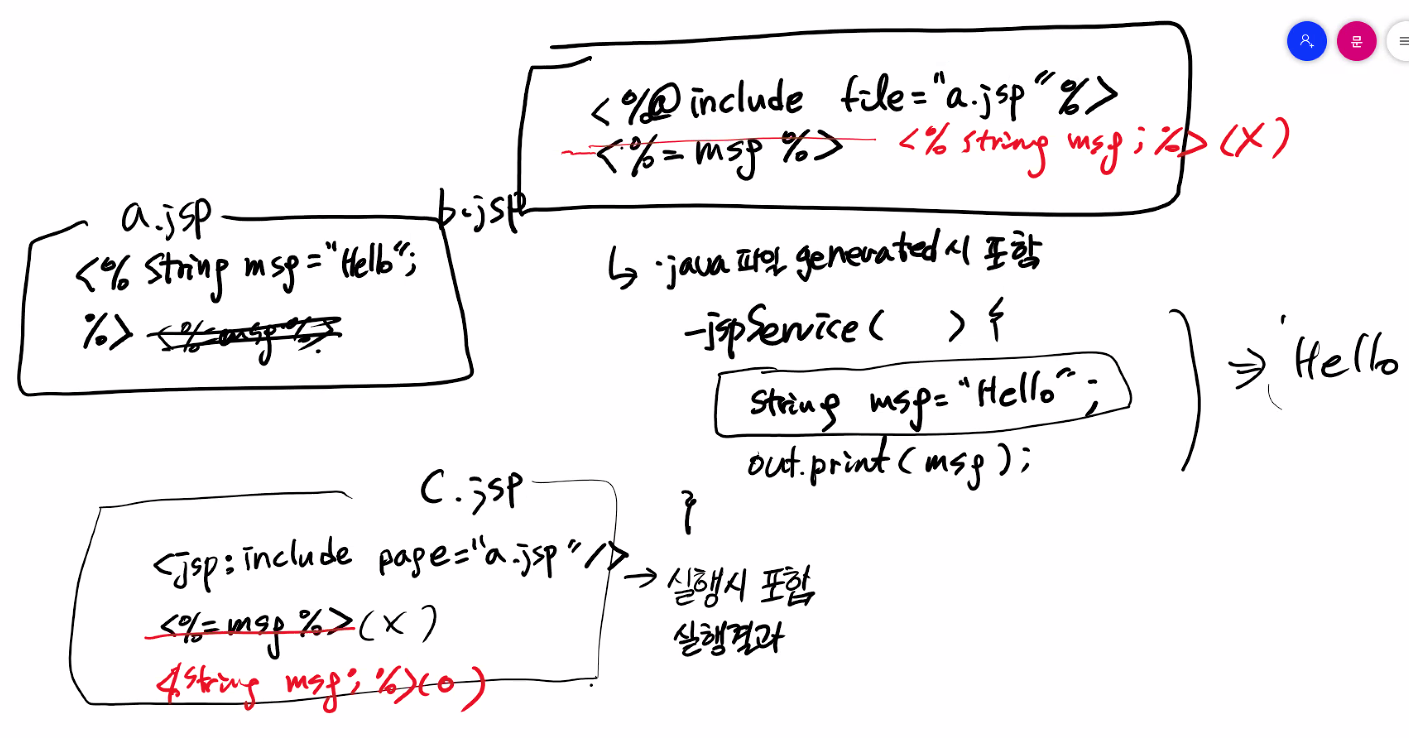 <%@ include file="a.jsp" %>
<%= msg %> <% string msg; %> (X)
b.jsp
a.jsp
<% string msg = "Hello";
%> <%=msg%>
↳ .java 파일 generated시 포함
_jspService( ) {
string msg = "Hello";
out.print(msg);
}
⇒ Hello
c.jsp
<jsp:include page="a.jsp" />
<%=msg %> (X)
<string msg; %> (o)
→ 실행시 포함
실행결과
문